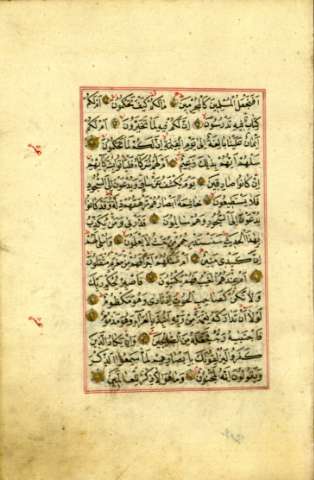 اَفَنَجْعَلُ الْمُسْلِمِينَ كَالْمُجْرِمِينَ مَا لَكُمْ كَيْفَ تَحْكُمُونَ اَمْ لَكُمْ
كِتَابٌ فِيهِ تَدْرُسُونَ اِنَّ لَكُمْ فِيهِ لَمَا تَخَيَّرُونَ اَمْ لَكُمْ
اَيْمَانٌ عَلَيْنَا بَالِغَةٌ اِلَى يَوْمِ الْقِيٰمَةِ اِنَّ لَكُمْ لَمَا تَحْكُمُونَ
سَلْهُمْ اَيُّهُمْ بِذٰلِكَ زَعِيمٌ اَمْ لَهُمْ شُرَكَاءُ فَلْيَأْتُوا بِشُرَكَائِهِمْ
اِنْ كَانُوا صَادِقِينَ يَوْمَ يُكْشَفُ عَنْ سَاقٍ وَيُدْعَوْنَ اِلَى السُّجُودِ
فَلَا يَسْتَطِيعُونَ خَاشِعَةً اَبْصَارُهُمْ تَرْهَقُهُمْ ذِلَّةٌ وَقَدْ كَانُوا
يُدْعَوْنَ اِلَى السُّجُودِ وَهُمْ سَالِمُونَ فَذَرْنِي وَمَنْ يُكَذِّبُ
بِهٰذَا الْحَدِيثِ سَنَسْتَدْرِجُهُمْ مِنْ حَيْثُ لَا يَعْلَمُونَ وَاُمْلِي لَهُمْ
اِنَّ كَيْدِي مَتِينٌ اَمْ تَسْـَٔلُهُمْ اَجْرًا فَهُمْ مِنْ مَغْرَمٍ مُثْقَلُونَ
اَمْ عِنْدَهُمُ الْغَيْبُ فَهُمْ يَكْتُبُونَ فَاصْبِرْ لِحُكْمِ رَبِّكَ
وَلَا تَكُنْ كَصَاحِبِ الْحُوتِ اِذْ نَادَى وَهُوَ مَكْظُومٌ
لَوْلَا اَنْ تَدَارَكَهُ نِعْمَةٌ مِنْ رَبِّهِ لَنُبِذَ بِالْعَرَاءِ وَهُوَ مَذْمُومٌ
فَاجْتَبٰيهُ رَبُّهُ فَجَعَلَهُ مِنَ الصَّالِحِينَ وَاِنْ يَكَادُ الَّذِينَ
كَفَرُوا لَيُزْلِقُونَكَ بِاَبْصَارِهِمْ لَمَّا سَمِعُوا الذِّكْرَ
وَيَقُولُونَ اِنَّهُ لَمَجْنُونٌ وَمَا هُوَ اِلَّا ذِكْرٌ لِلْعَالَمِينَ